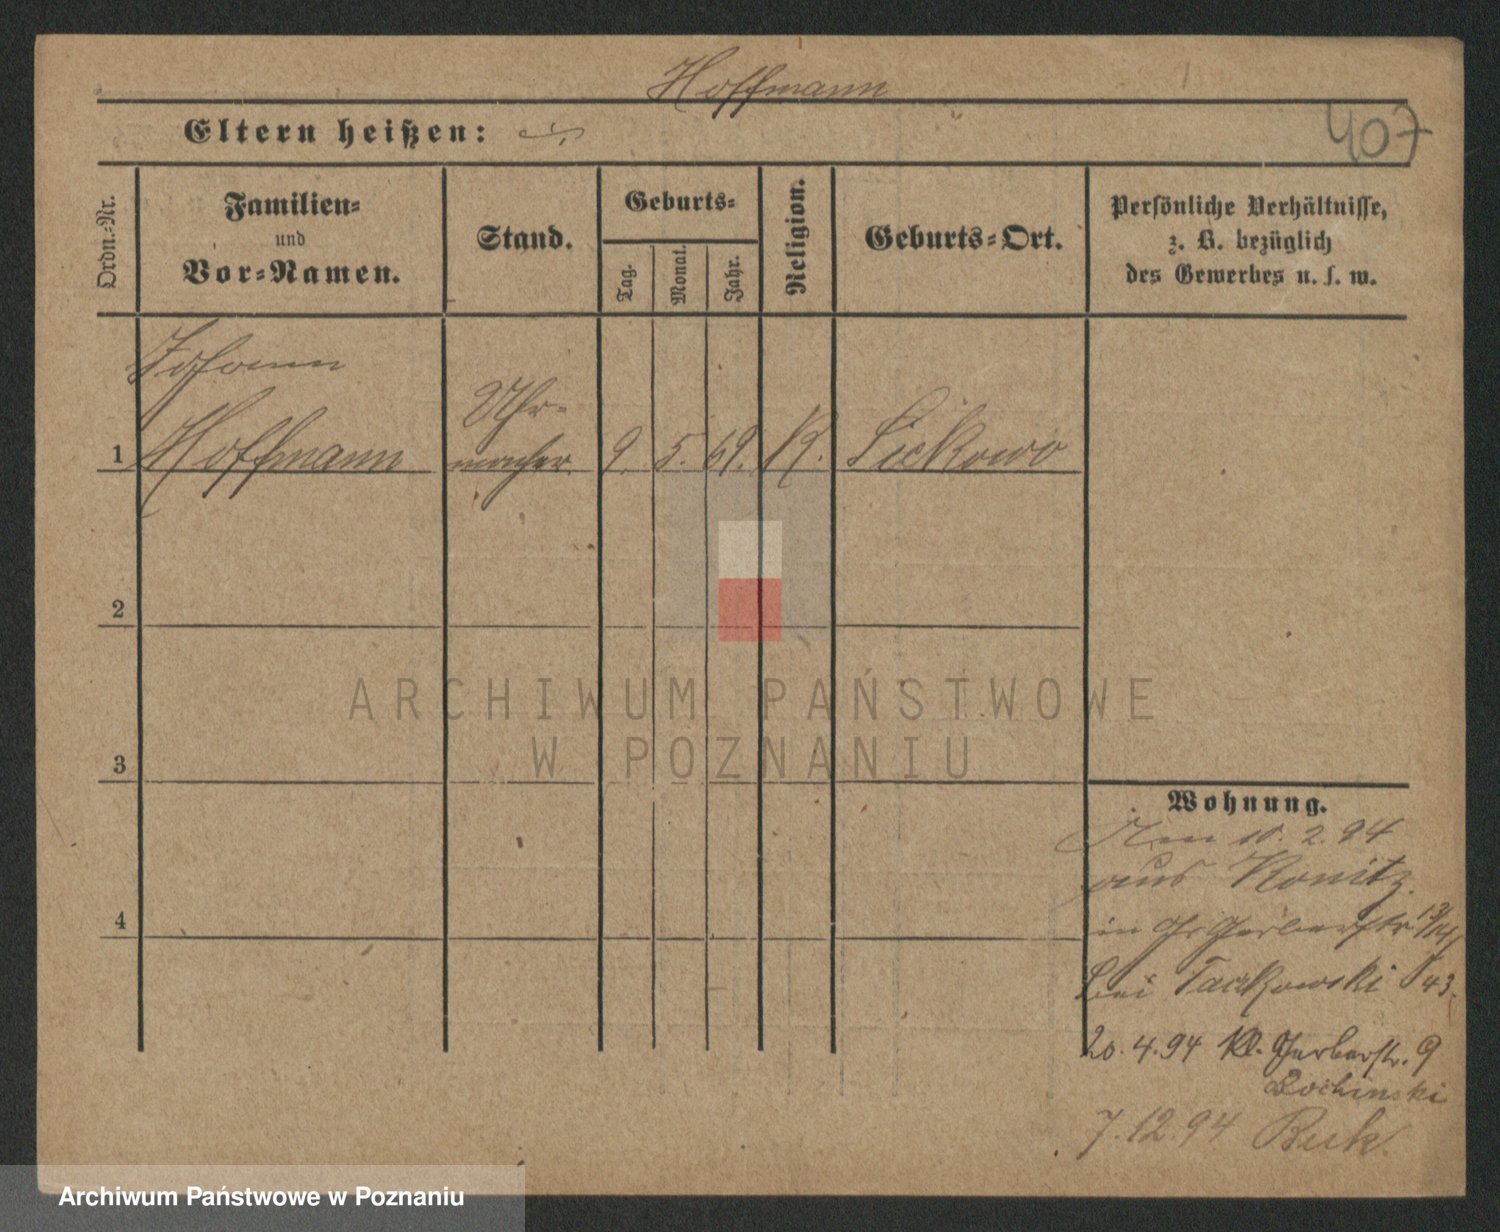 Hoffmann
Eltern heißen:
407
Ordn.-Nr.
Familien-
und
Vor-Namen.
Stand.
Geburts-
Tag.
Monat.
Jahr.
Religion.
Geburts-Ort.
Persönliche Verhältnisse,
z. B. bezüglich
des Gewerbes u. s. w.
Johann
Uhr-
1 Hoffmann macher 9. 5. 69. K. Lickowo
2
ARCHIWUM PAŃSTWOWE
W POZNANIU
3
Wohnung.
Am 10. 2. 94
aus Konitz.
4
in Gr Gerberstr 13/14
bei Taczkowski 43
20. 4. 94 Kl. Gerberstr. 9
Lochinski
7. 12. 94
Archiwum Państwowe w Poznaniu